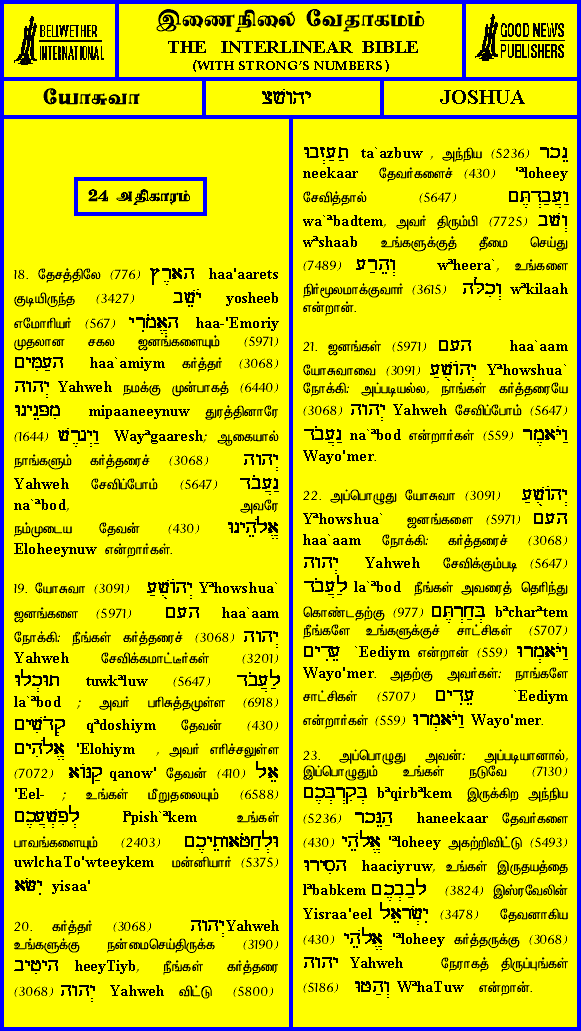 BELLWETHER INTERNATIONAL
இணைநிலை வேதாகமம்
THE INTERLINEAR BIBLE
(WITH STRONG'S NUMBERS)
GOOD NEWS PUBLISHERS
யோசுவா
JOSHUA
24 அதிகாரம்
18. தேசத்திலே (776) הארץ haa'aarets
குடியிருந்த (3427) ישׁב yosheeb
எமோரியர் (567) האמרי haa-'Emoriy
முதலான சகல ஜனங்களையும் (5971)
העמים haa`amiym கர்த்தர் (3068)
יהוה Yahweh நமக்கு முன்பாகத் (6440)
מפנינו mipaaneeynuw துரத்தினாரே
(1644) ויגרשׁ Wayªgaaresh; ஆகையால்
நாங்களும் கர்த்தரைச் (3068) יהוה
Yahweh சேவிப்போம் (5647) נעבד
na`ªbod, அவரே
நம்முடைய தேவன் (430) אלהינו
Eloheeynuw என்றார்கள்.
19. யோசுவா (3091) יהושׁע Yªhowshua`
ஜனங்களை (5971) העם haa`aam
நோக்கி: நீங்கள் கர்த்தரைச் (3068) יהוה
Yahweh சேவிக்கமாட்டீர்கள் (3201)
תוכלו tuwkªluw (5647) לעבד
la`ªbod ; அவர் பரிசுத்தமுள்ள (6918)
קדשׁים qªdoshiym தேவன் (430)
אלהים 'Elohiym , அவர் எரிச்சலுள்ள
(7072) קנוא qanow' தேவன் (410) אל
'Eel- ; உங்கள் மீறுதலையும் (6588)
לפשׁעכם lªpish`ªkem உங்கள்
பாவங்களையும் (2403) ולחטאותיכם
uwlchaTo'wteeykem மன்னியார் (5375)
ישׂא yisaa'
20. கர்த்தர் (3068) יהוה Yahweh
உங்களுக்கு நன்மைசெய்திருக்க (3190)
היטיב heeyTiyb, நீங்கள் கர்த்தரை
(3068) יהוה Yahweh விட்டு (5800)
תעזבו ta`azbuw , அந்நிய (5236) נכר
neekaar தேவர்களைச் (430) 'ªloheey
சேவித்தால் (5647) ועבדתם
wa`ªbadtem, அவர் திரும்பி (7725) ושׁב
wªshaab உங்களுக்குத் தீமை செய்து
(7489) והרע wªheera`, உங்களை
நிர்மூலமாக்குவார் (3615) וכלה wªkilaah
என்றான்.
21. ஜனங்கள் (5971) העם haa`aam
யோசுவாவை (3091) יהושׁע Yªhowshua`
நோக்கி: அப்படியல்ல, நாங்கள் கர்த்தரையே
(3068) יהוה Yahweh சேவிப்போம் (5647)
נעבד na`ªbod என்றார்கள் (559) ויאמר
Wayo'mer.
22. அப்பொழுது யோசுவா (3091) יהושׁע
Yªhowshua` ஜனங்களை (5971) העם
haa`aam நோக்கி: கர்த்தரைச் (3068)
יהוה Yahweh சேவிக்கும்படி (5647)
לעבד la`ªbod நீங்கள் அவரைத் தெரிந்து
கொண்டதற்கு (977) בחרתם bªcharªtem
நீங்களே உங்களுக்குச் சாட்சிகள் (5707)
עדים `Eediym என்றான் (559) ויאמרו
Wayo'mer. அதற்கு அவர்கள்: நாங்களே
சாட்சிகள் (5707) עדים `Eediym
என்றார்கள் (559) ויאמרו Wayo'mer.
23. அப்பொழுது அவன்: அப்படியானால்,
இப்பொழுதும் உங்கள் நடுவே (7130)
בקרבכם bªqirbªkem இருக்கிற அந்நிய
(5236) הנכר haneekaar தேவர்களை
(430) אלהי 'ªloheey அகற்றிவிட்டு (5493)
הסירו haaciyruw, உங்கள் இருதயத்தை
lªbabkem לבבכם (3824) இஸ்ரவேலின்
Yisraa'eel ישׂראל (3478) தேவனாகிய
(430) אלהי 'ªloheey கர்த்தருக்கு (3068)
יהוה Yahweh நேராகத் திருப்புங்கள்
(5186) והטו WªhaTuw என்றான்.